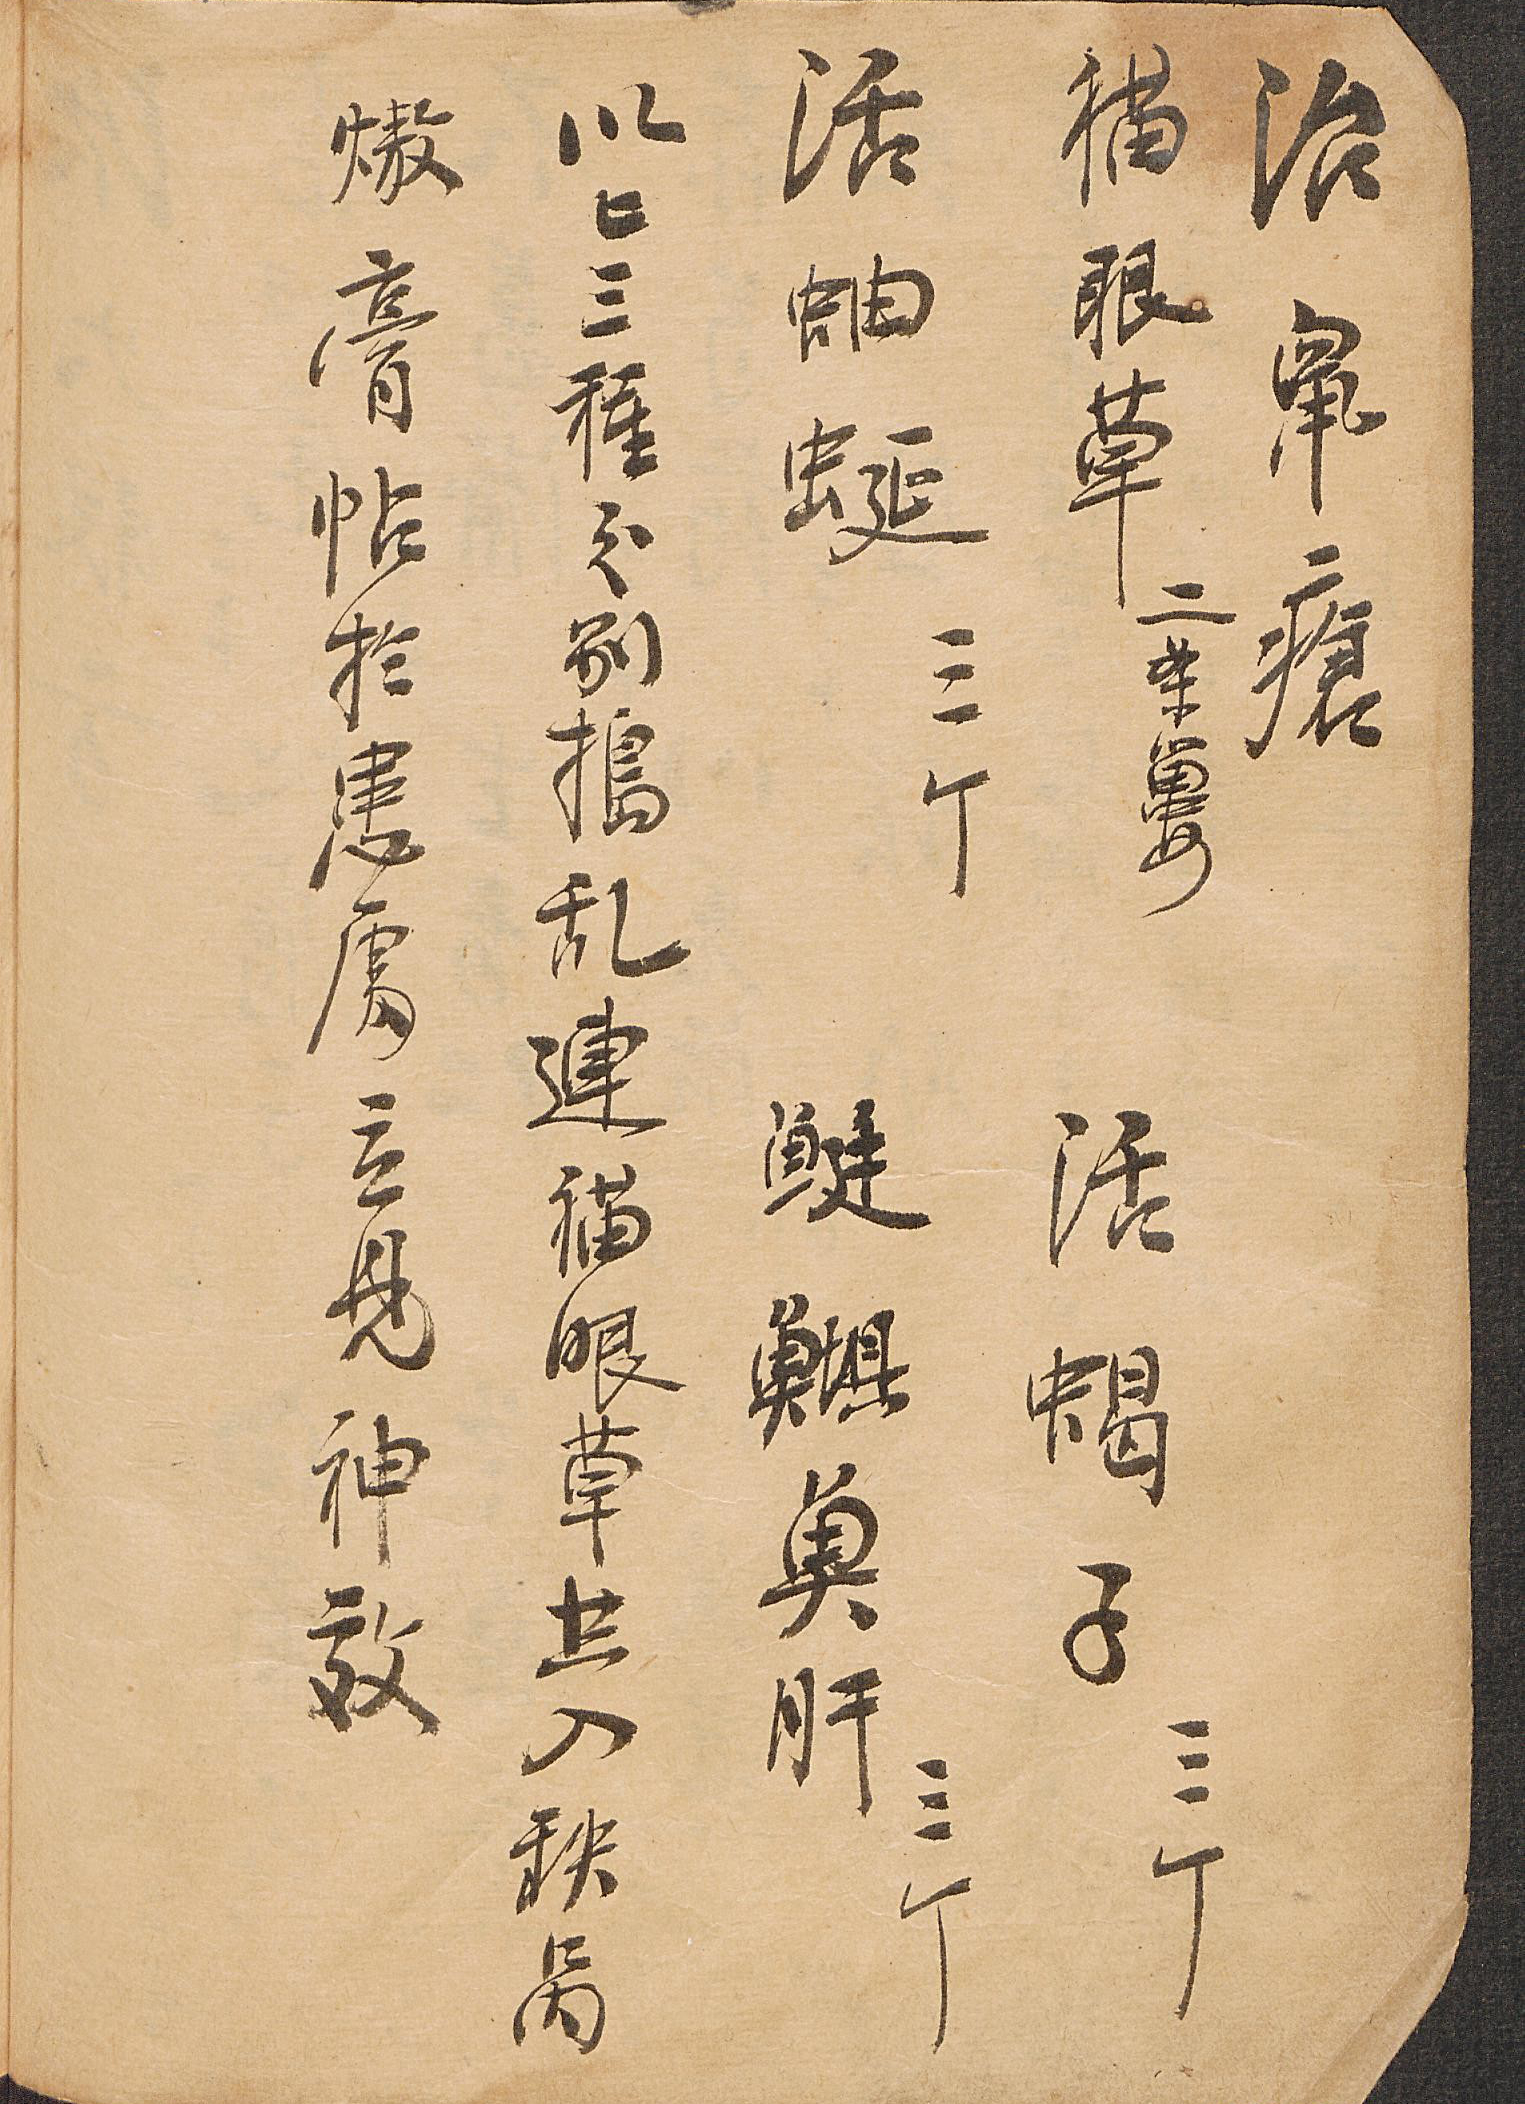 治鼠瘡
猫眼草 二 活蝎子 三个
活蚰蜒 三个 魚肝 三个
以上三種分别搗乱連猫眼草共入鉄鍋
熬膏帖於患處立見神效